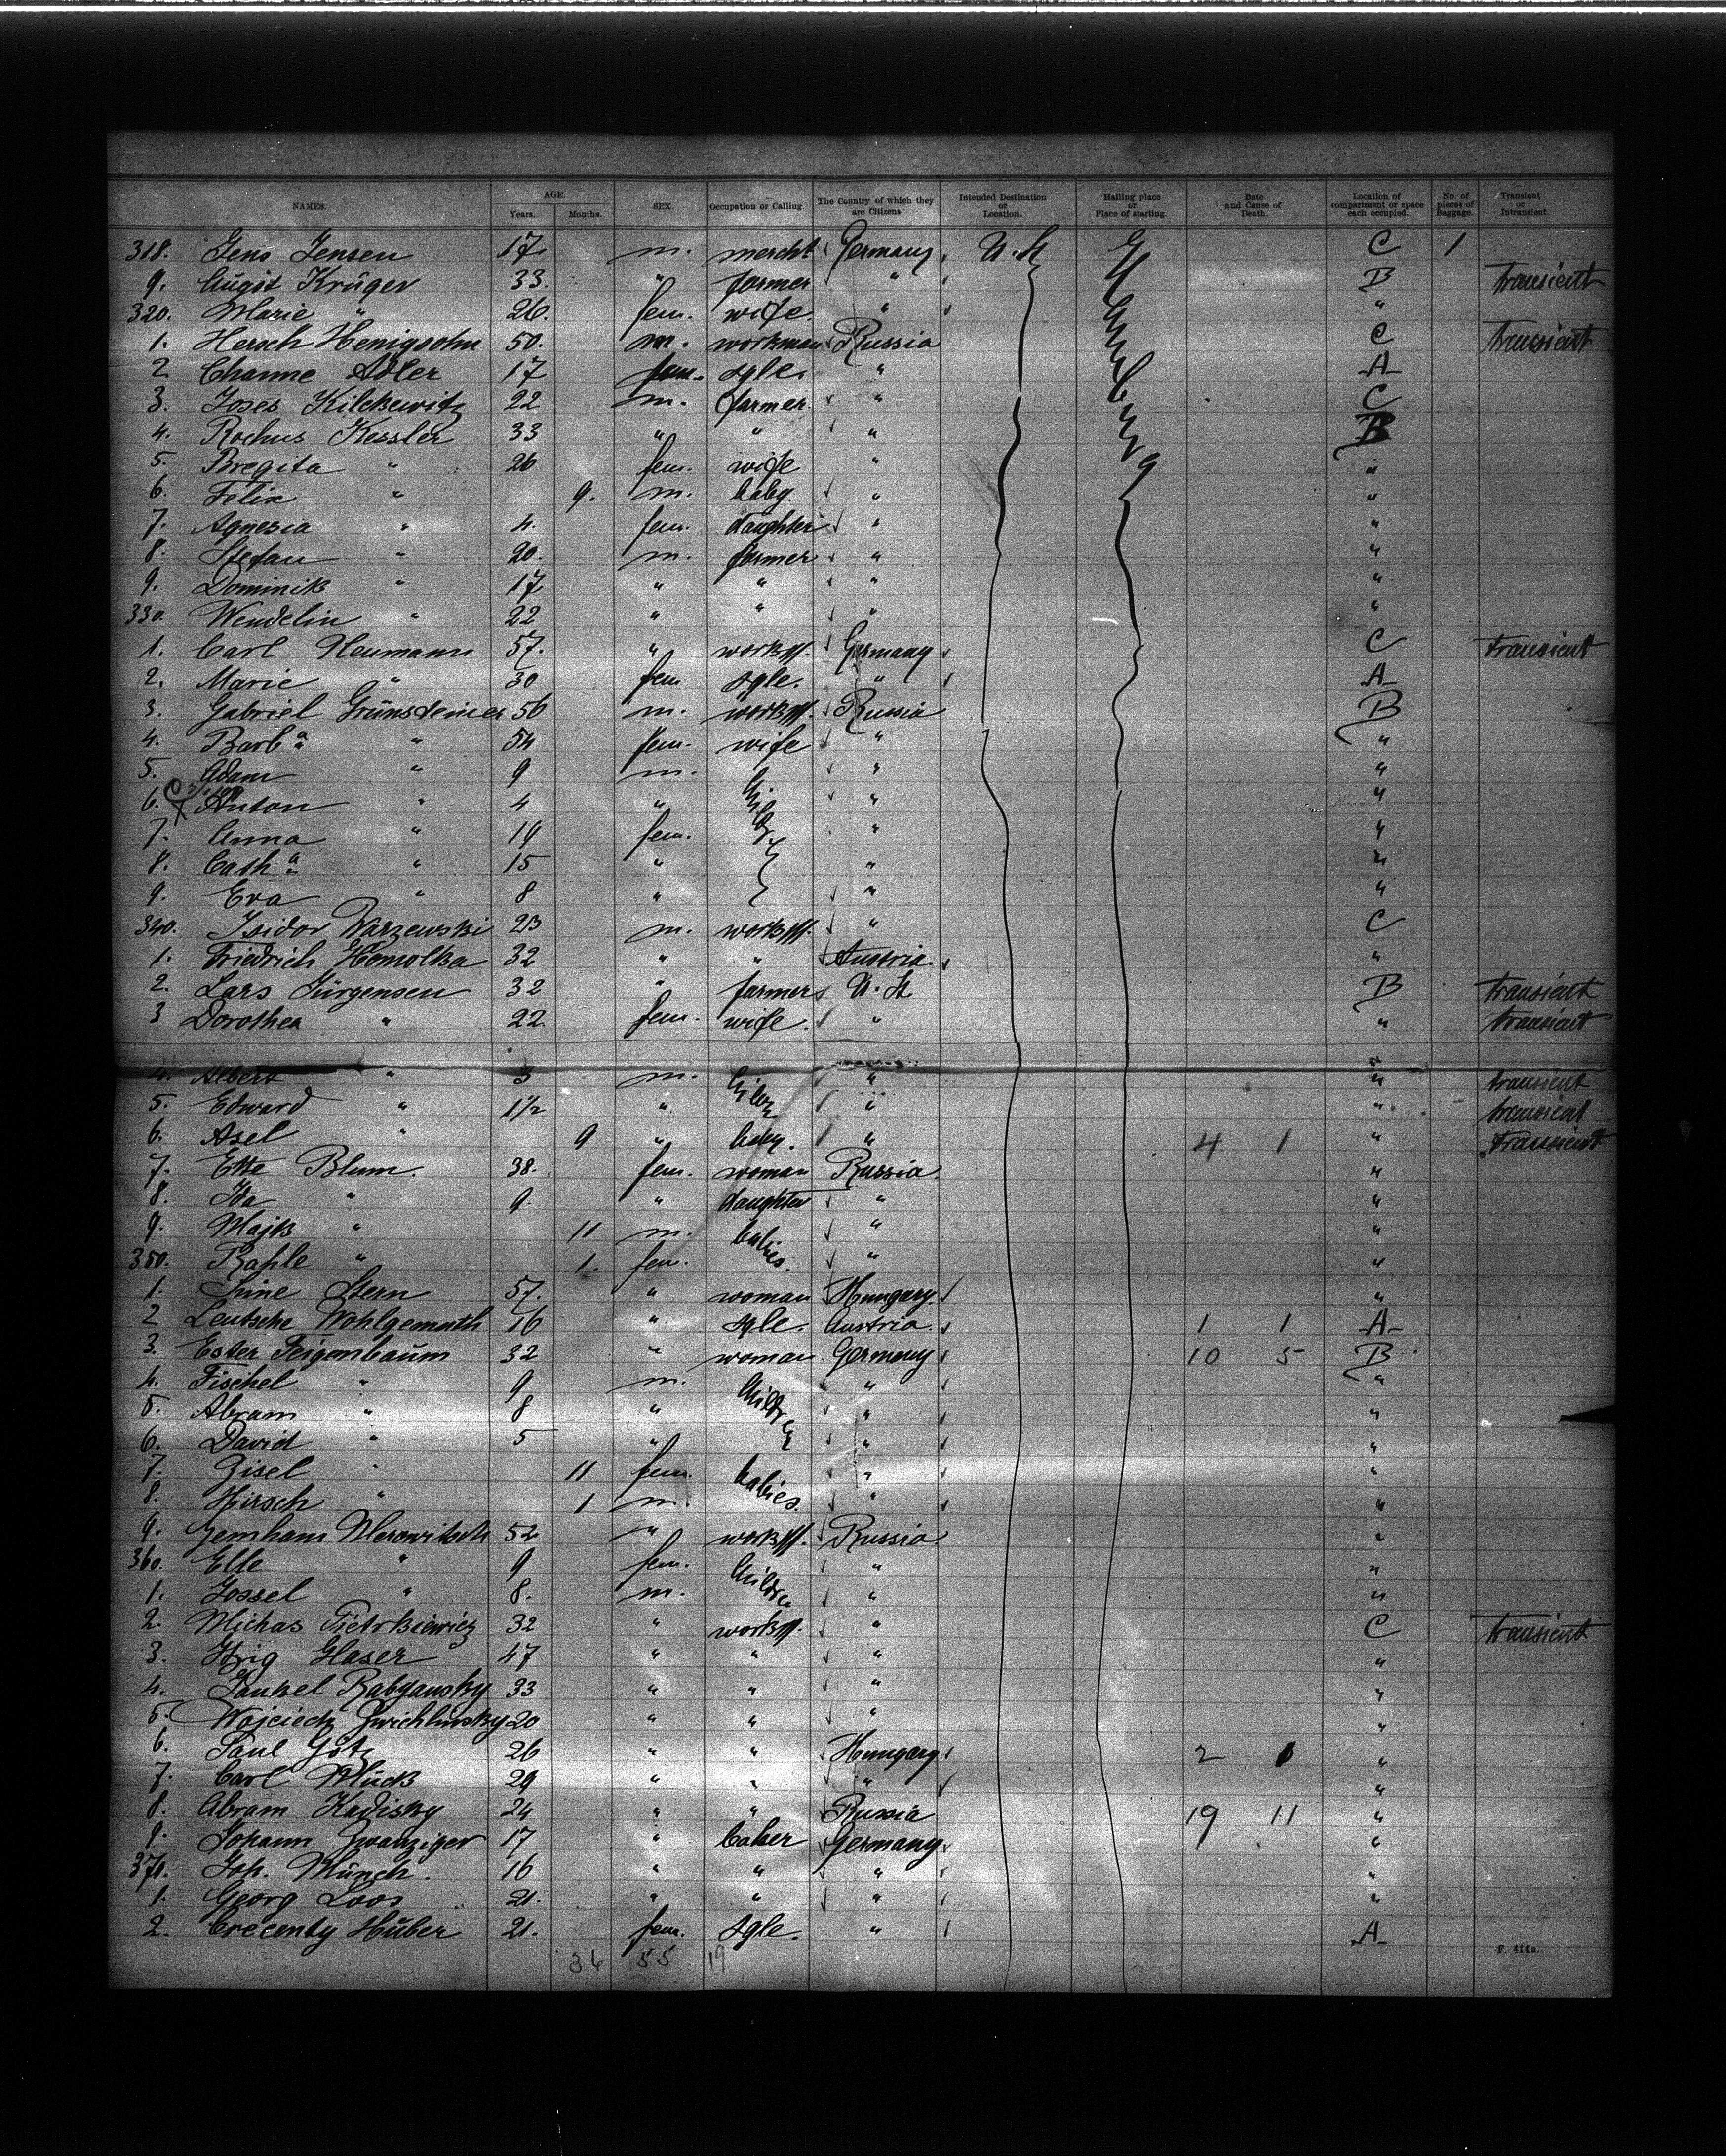 NAMES. AGE. Years. Months. SEX. Occupation or Calling. The Country of which they are Citizens Intended Destination or Location. Hailing place or Place of starting. Date and Cause of Death. Location of compartment or space each occupied. No. of pieces of Baggage. Transient or Intransient.
318. Jens Jensen 17. m. mercht Germany U. St Hamburg C 1
9. August Krüger 33. " farmer " B transient
320. Marie " 26. fem. wife. " "
1. Hersch Henigsohn 50. m. workman Russia C transient
2 Channe Adler 17 fem. sgle. " A
3. Joses Kilckewitz 22 m. farmer. " C
4. Rochus Kessler 33 " " " B
5. Bregita " 26 fem. wife " "
6. Felix " 9. m. baby. " "
7. Agnesia " 4. fem. daughter " "
8. Stefan " 20. m. farmer " "
9. Dominik " 17 " " " "
330. Wendelin " 22 " " " "
1. Carl Neumann 57. " workm. Germany C transient
2. Marie " 30 fem sgle. " A
3. Gabriel Grünsteiner 56 m. workm. Russia B
4. Barba " 54 fem. wife " "
5. Adam " 9 m. childr " "
6. Anton " 4 " " "
7. Anna " 19 fem. " "
8. Catha " 15 " " "
9. Eva " 8 " " "
340. Isidor Warzewski 23 m. workm. " C
1. Friedrich Homolka 32 " " Austria. "
2. Lars Jürgensen 32 " farmer U. St. B transient
3 Dorothea " 22. fem. wife. " " transient
4. Albert " 3 m. childr " " transient
5. Edward " 1½ " " " transient
6. Axel " 9 " baby. " 4 1 " transient
7. Ette Blum. 38. fem. woman Russia. "
8. Ida " 9. " daughter " "
9. Majk " 11 m. babies. " "
350. Rahle " 1. fem. " "
1. Sine Stern 57. " woman Hungary. "
2 Leutsche Wohlgemuth 16 " sgle. Austria. 1 1 A
3. Ester Feigenbaum 32 " woman Germany 10 5 B
4. Fischel " 9 m. children " "
5. Abram " 8 " " "
6. David " 5 " " "
7. Zisel " 11 fem. babies. " "
8. Hirsch " 1 m. " "
9. Merowitsch 52 " workm. Russia "
360. Elle " 9 fem. children " "
1. Jossel " 8. m. " "
2. Michas Pietrkiewicz 32 " workm. " C transient
3. Itzig Glaser 47 " " " "
4. Jankel 33 " " " "
5. Wojciech 20 " " " "
6. Paul Götz 26 " " Hungary 2 "
7. Carl Mück 29 " " " "
8. Abram Kadisky 24 " " Russia 19 11 "
9. Johann Zwanziger 17 " baker Germany "
370. Joh. Münch. 16 " " " "
1. Georg Loos 21. " " " "
2. Crecenty Huber 21. fem. sgle. " A
36 55 19
F. 414a.